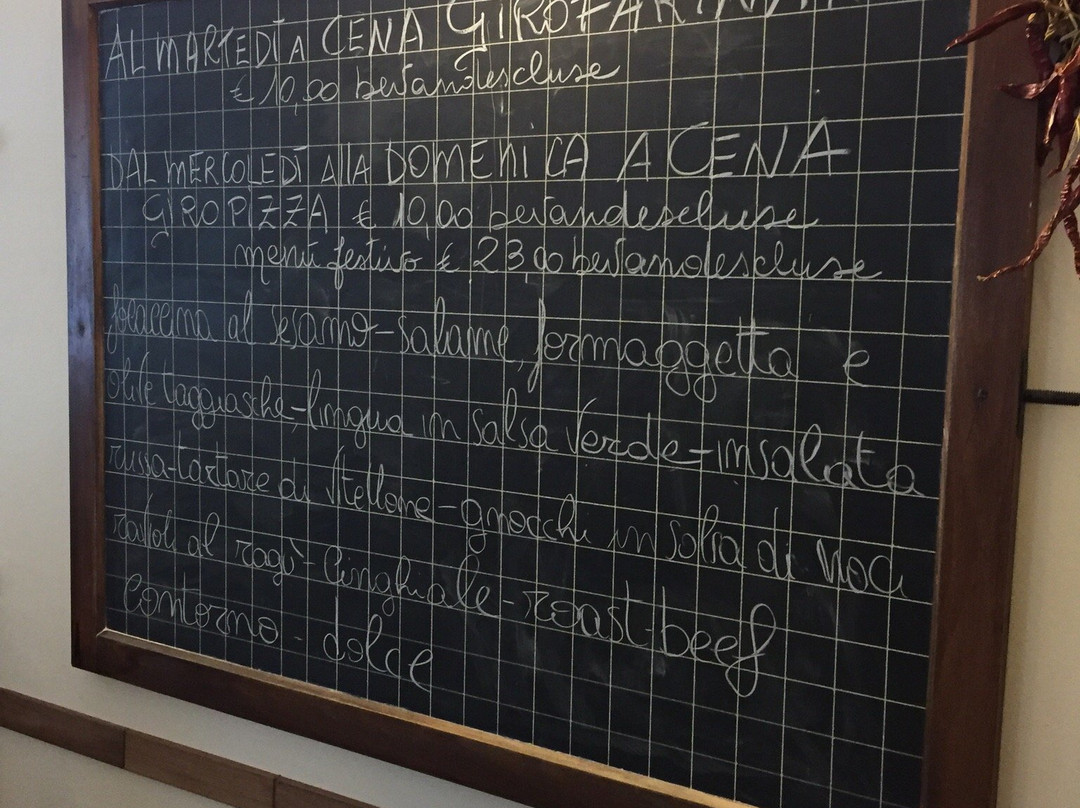 AL MARTEDÌ A CENA GIROFARINATA
€ 10,00 bevandescluse
DAL MERCOLEDÌ AllA DOMENICA A CENA
GIROPIZZA € 10,00 bevandescluse
menù festivo € 23,00 bevandescluse
focaccina al sesamo-salame, formaggetta e
olive taggiasche-lingua in salsa verde-insalata
russa-tartare di vitellone-gnocchi in salsa di noci
ravioli al ragù-Cinghiale-roast-beef
Contorno-dolce